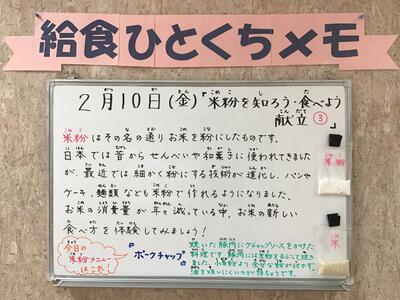 給食ひとくちメモ
2月10日(金)「米粉を知ろう・食べよう
献立③
米粉はその名の通りお米を粉にしたものです。
日本では昔からせんべいや和菓子に使われてきました
が、最近では細かく粉にする技術が進化し、パンや
ケーキ、麺類なども米粉で作れるようになりました。
お米の消費量が年々減っている中、お米の新しい
食べ方を体験してみましょう!
今日の
米粉メニュー
はこれ!
『ポークチャップ』
焼いた豚肉にケチャップソースをかけた
料理です。豚肉には米粉をまぶして焼き
ました。小麦粉より余分な粉が付かず、
油を吸いにくいのが特ちょうです。
米粉
米